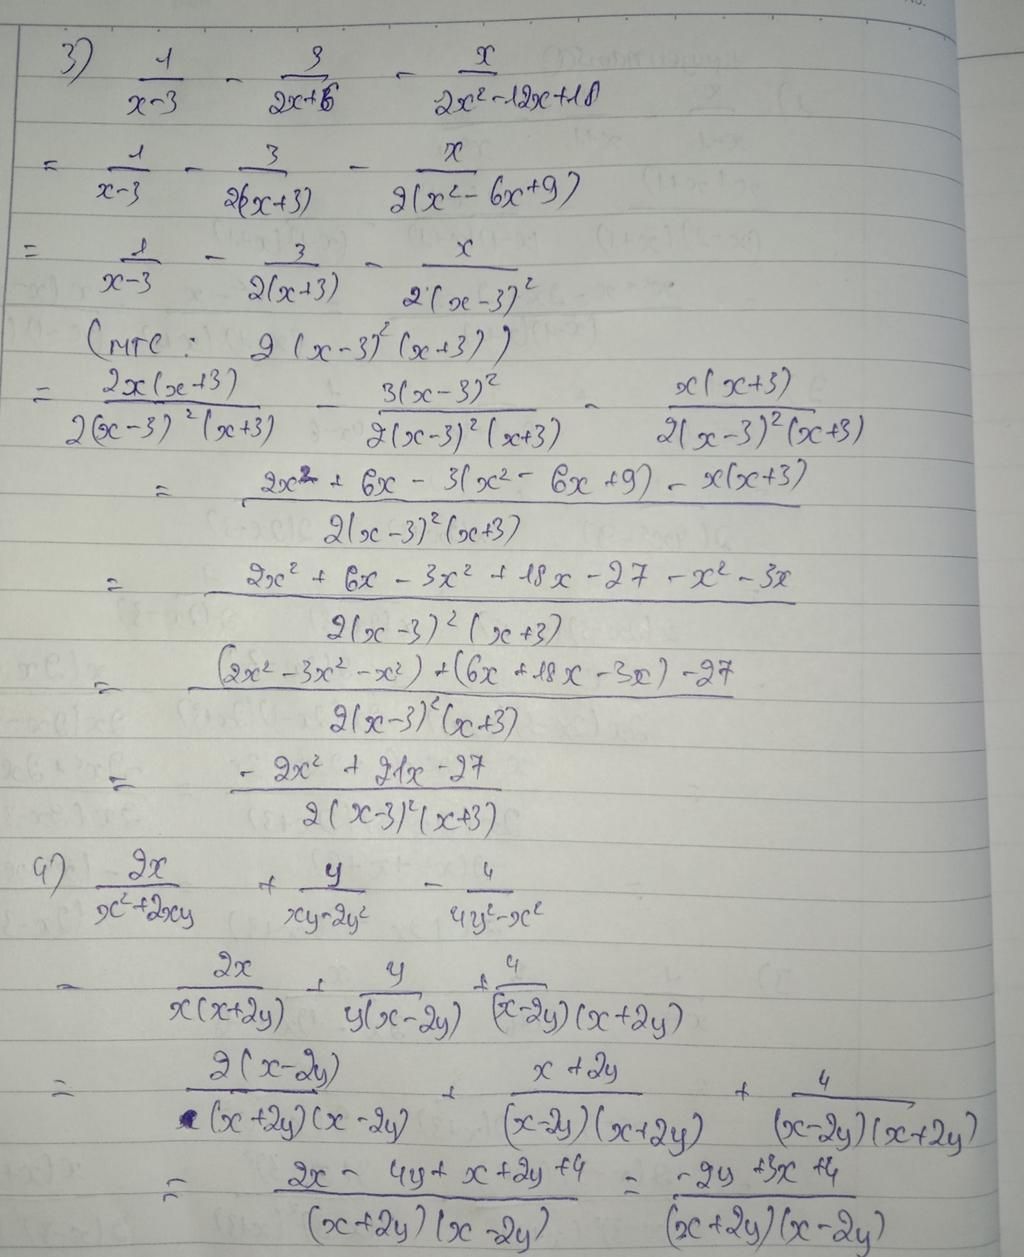 3) 1/(x-3) - 3/(2x+6) - x/(2x²-12x+18)
= 1/(x-3) - 3/(2(x+3)) - x/(2(x²-6x+9))
= 1/(x-3) - 3/(2(x+3)) - x/(2(x-3)²)
(MTC: 2(x-3)²(x+3))
= 2x(x+3)/(2(x-3)²(x+3)) - 3(x-3)²/(2(x-3)²(x+3)) - x(x+3)/(2(x-3)²(x+3))
= (2x²+6x-3(x²-6x+9)-x(x+3))/(2(x-3)²(x+3))
= (2x²+6x-3x²+18x-27-x²-3x)/(2(x-3)²(x+3))
= ((2x²-3x²-x²)+(6x+18x-3x)-27)/(2(x-3)²(x+3))
= (-2x²+21x-27)/(2(x-3)²(x+3))
4) 2x/(x²+2xy) + y/(xy-2y²) - 4/(4y²-x²)
= 2x/(x(x+2y)) + y/(y(x-2y)) + 4/((x-2y)(x+2y))
= 2(x-2y)/((x+2y)(x-2y)) + (x+2y)/((x-2y)(x+2y)) + 4/((x-2y)(x+2y))
= (2x-4y+x+2y+4)/((x+2y)(x-2y)) = (-2y+3x+4)/((x+2y)(x-2y))